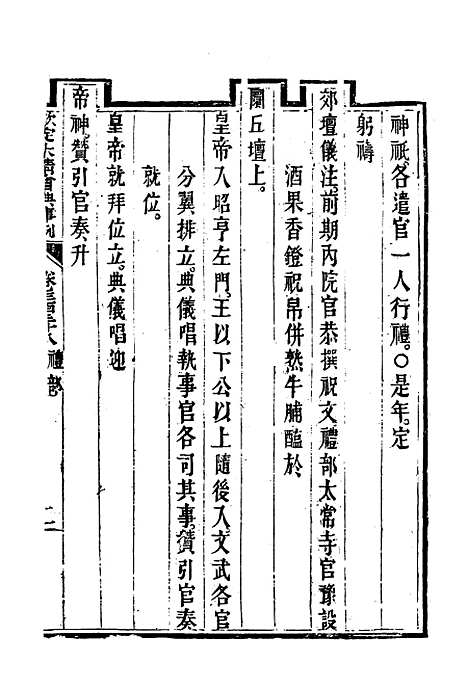 神祇各遣官一人行禮。〇是年。定
躬禱
郊壇儀注。前期內院官恭撰祝文禮部太常寺官豫設
酒果香鐙祝帛併熟牛脯醢於
圜丘壇上。
皇帝入昭亨左門。王以下公以上隨後入。文武各官
分翼排立。典儀唱執事官各司其事。贊引官奏
就位。
皇帝就拜位立。典儀唱迎
帝神。贊引官奏升
欽定大清會典事例
禮部
二